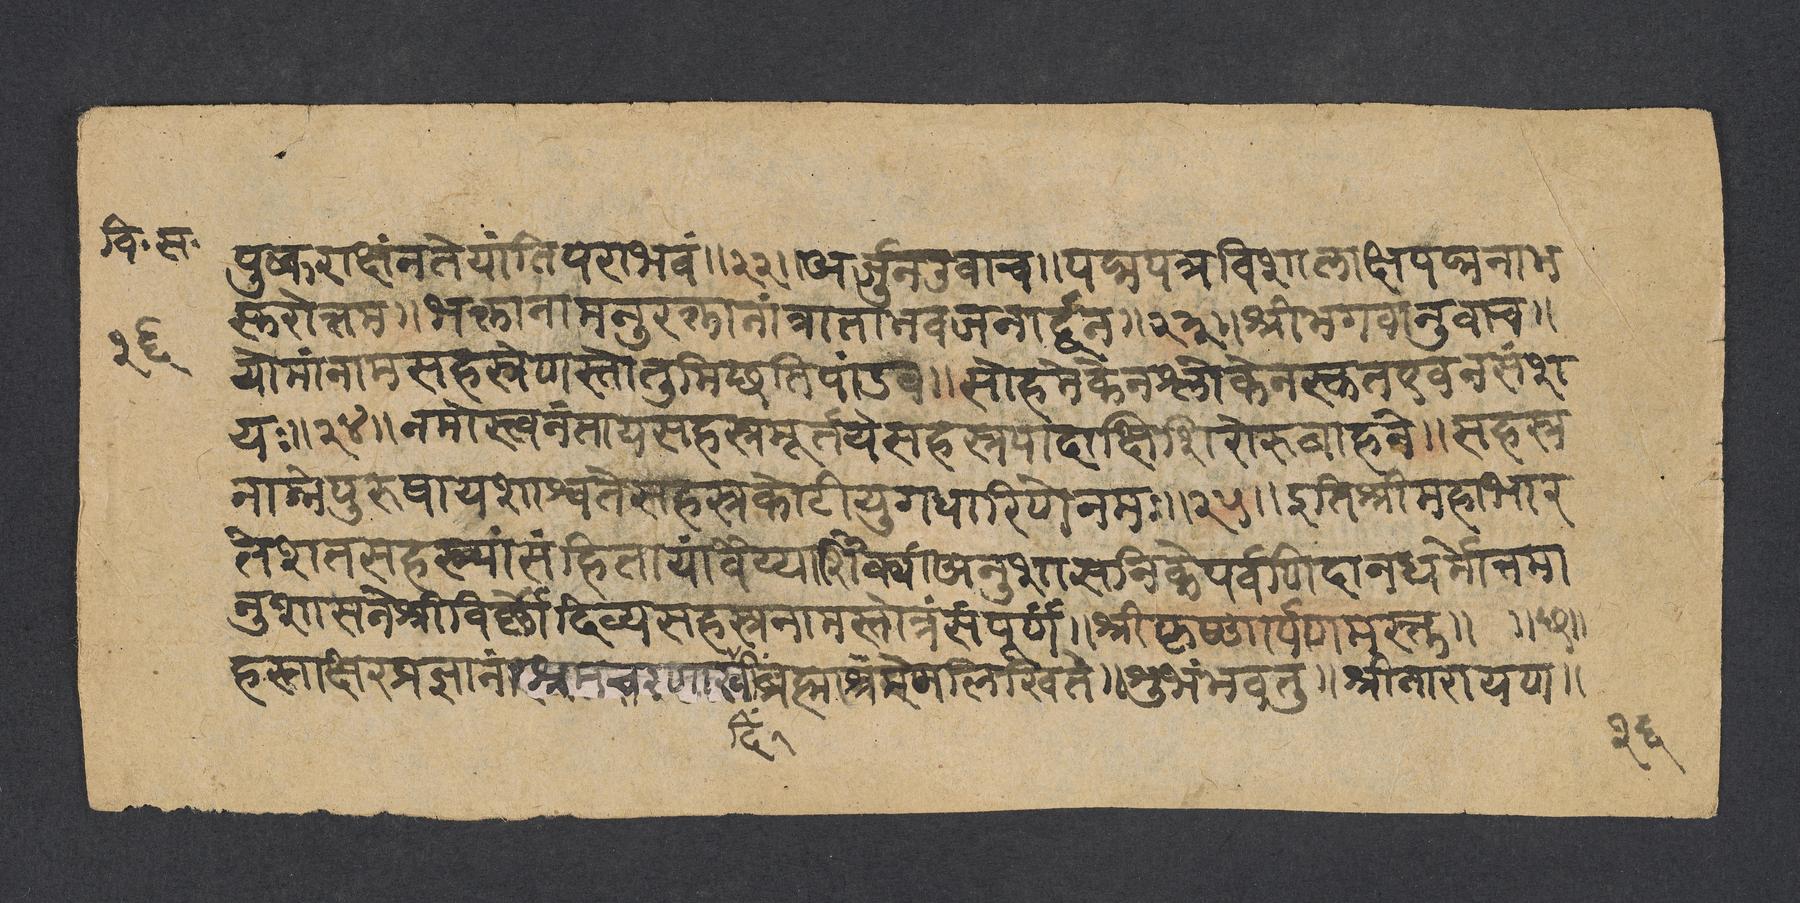 वि॰ स॰
पुष्कराक्षंनतेयांतिपराभवं॥२२॥अर्जुनउवाच॥पद्मपत्रविशालाक्षपद्मनाभ
२६
सुरोत्तम॥भक्तानामनुरक्तानांत्राताभवजनार्द्दन॥२३॥श्रीभगवानुवाच॥
योमांनामसहस्रेणस्तोतुमिच्छतिपांडव॥सोहमेकेनश्लोकेनस्तुतएवनसंश
यः॥२४॥नमोस्त्वनंतायसहस्रमूर्तयेसहस्रपादाक्षिशिरोरुबाहवे॥सहस्र
नाम्नेपुरुषायशाश्वतेसहस्रकोटीयुगधारिणेनमः॥२५॥इतिश्रीमहाभार
तेशतसहस्र्यांसंहितायांवैय्याशिक्यांअनुशासनिकेपर्वणिदानधर्मोत्तमा
नुशासनेश्रीविर्ष्णोदिव्यसहस्रनामस्तोत्रंसंपूर्णं॥श्रीकृष्णार्पणमस्तु॥ ॥छ॥
हस्ताक्षर लिखितं॥शुभंभवतु॥श्रीनारायण॥
२६